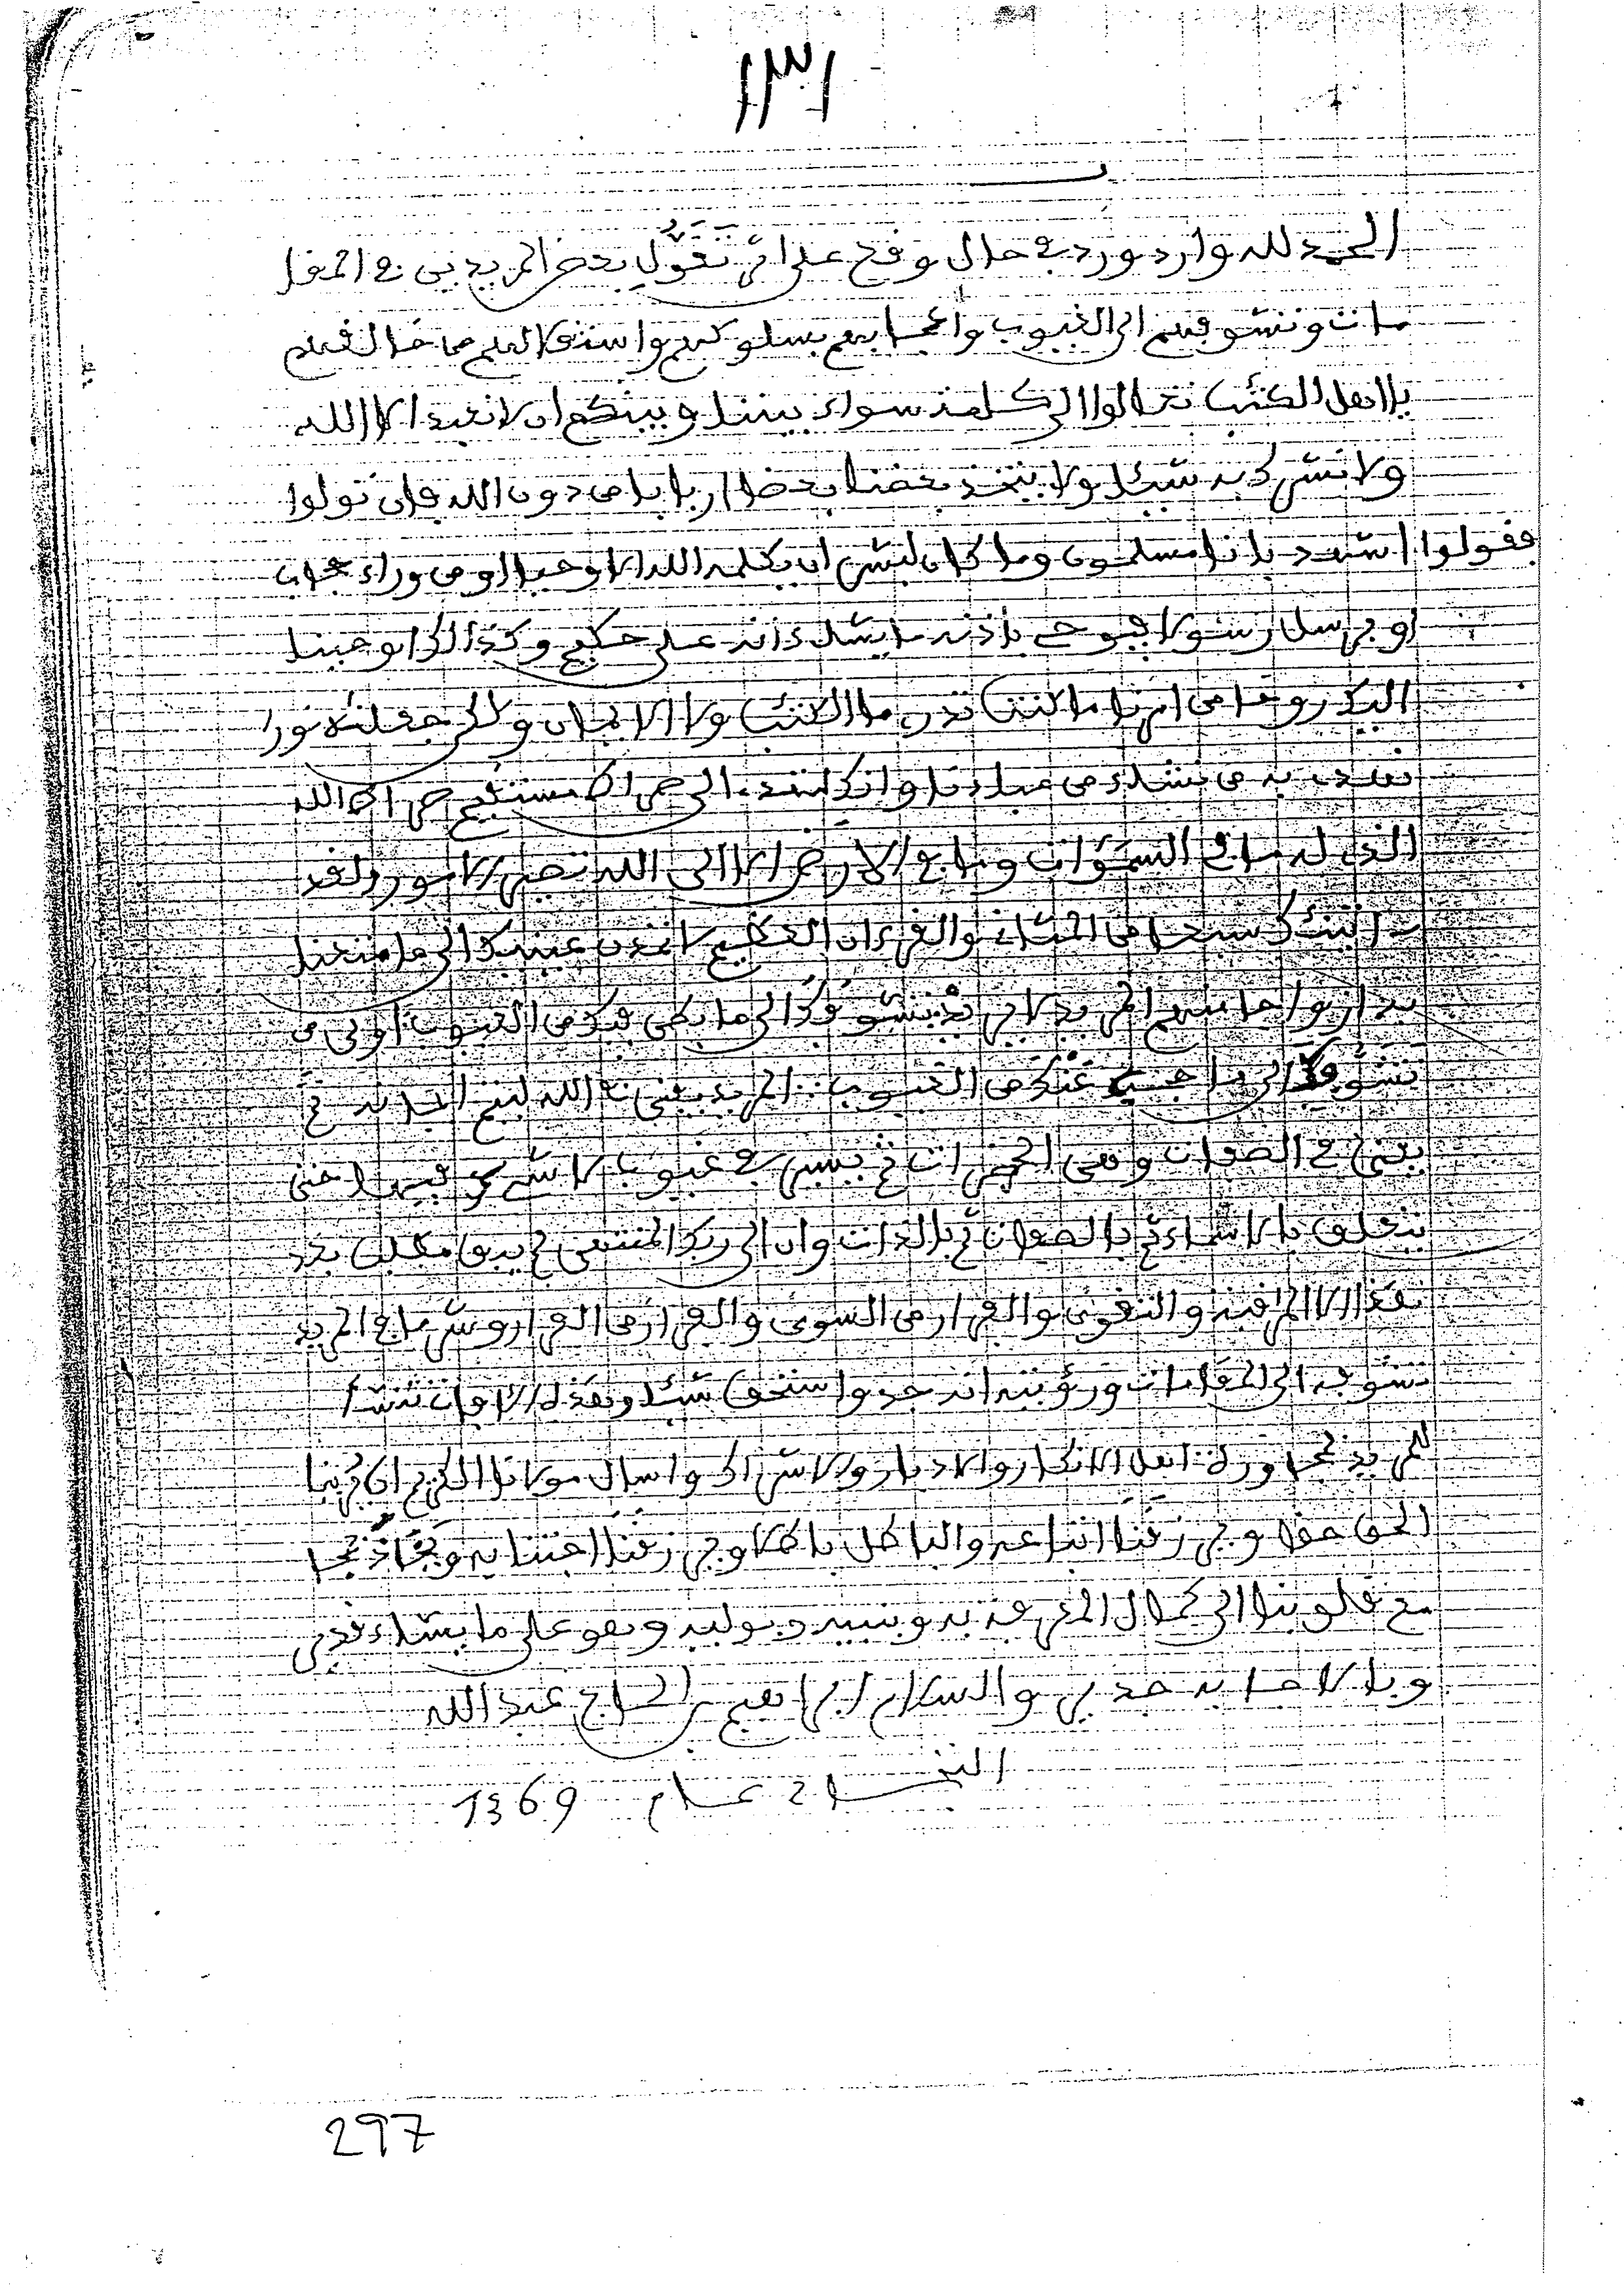 ١٣١
الحمد لله وارد ورد في حال وقع على اثر تقول بعض المريدين في المقا
مات وتشوفهم الى الغيوب واعجابهم بسلوكهم واستنقا لهم من خالفهم
يا اهل الكتب تعالوا الى كلمة سواء بيننا وبينكم ان لا نعبد الا الله
ولا نشرك به شيئا ولا يتخذ بعضنا بعضا اربابا من دون الله فان تولوا
فقولوا اشهدوا بانا مسلمون وما كان لبشر ان يكلمه الله الا وحيا او من وراء حجاب
او يرسل رسولا فيوحي باذنه ما يشاء انه علي حكيم وكذالك اوحينا
اليك روحا من امرنا ما كنت تدري ما الكتب ولا الايمان ولكن جعلنه نورا
نهدي به من نشاء من عبادنا وانك لتهدي الى صراط مستقيم صراط الله
الذي له ما في السموات وما في الارض الا الى الله تصير الامور ولقد
ءاتينك سبعا من المثاني والقرءان العظيم لا تمدن عينيك الى ما متعنا
به ازواجا منهم المريد تشوفك الى ما بطن فيك من العيوب اولى من
تشوفك الى ما حجب عنك من الغيوب المريد يفنى في الله ثم
يفنى في الصفات وهي الحضرات ثم يسير في غيوب الاسماء فيها حتى
يتخلق بالاسماء ثم بالصفات ثم بالذات وان الى ربك المنتهى لم يبق مطلب بعد
هذا الا المراقبة والتقوى والفرار من السوى والفرار من الفرار وشر ما في المريد
تشوفه الى المقامات ورؤيته انه جد واستحق شيئا وهذه الافات تنشأ
للمريد لمجاورة اهل الانكار والادبار والاشراك واسال مولانا الكريم ان يرينا
الحق حقا ويرزقنا اتباعه والباطل باطلا ويرزقنا اجتنابه ويجاذ بمجا
مع قلوبنا الى كمال المعرفة به وبنبيه وبوليه وهو على ما يشاء قدير
وبالاجابة جدير والسلام ابراهيم بن الحاج عبد الله
التجاني عام 1369
297